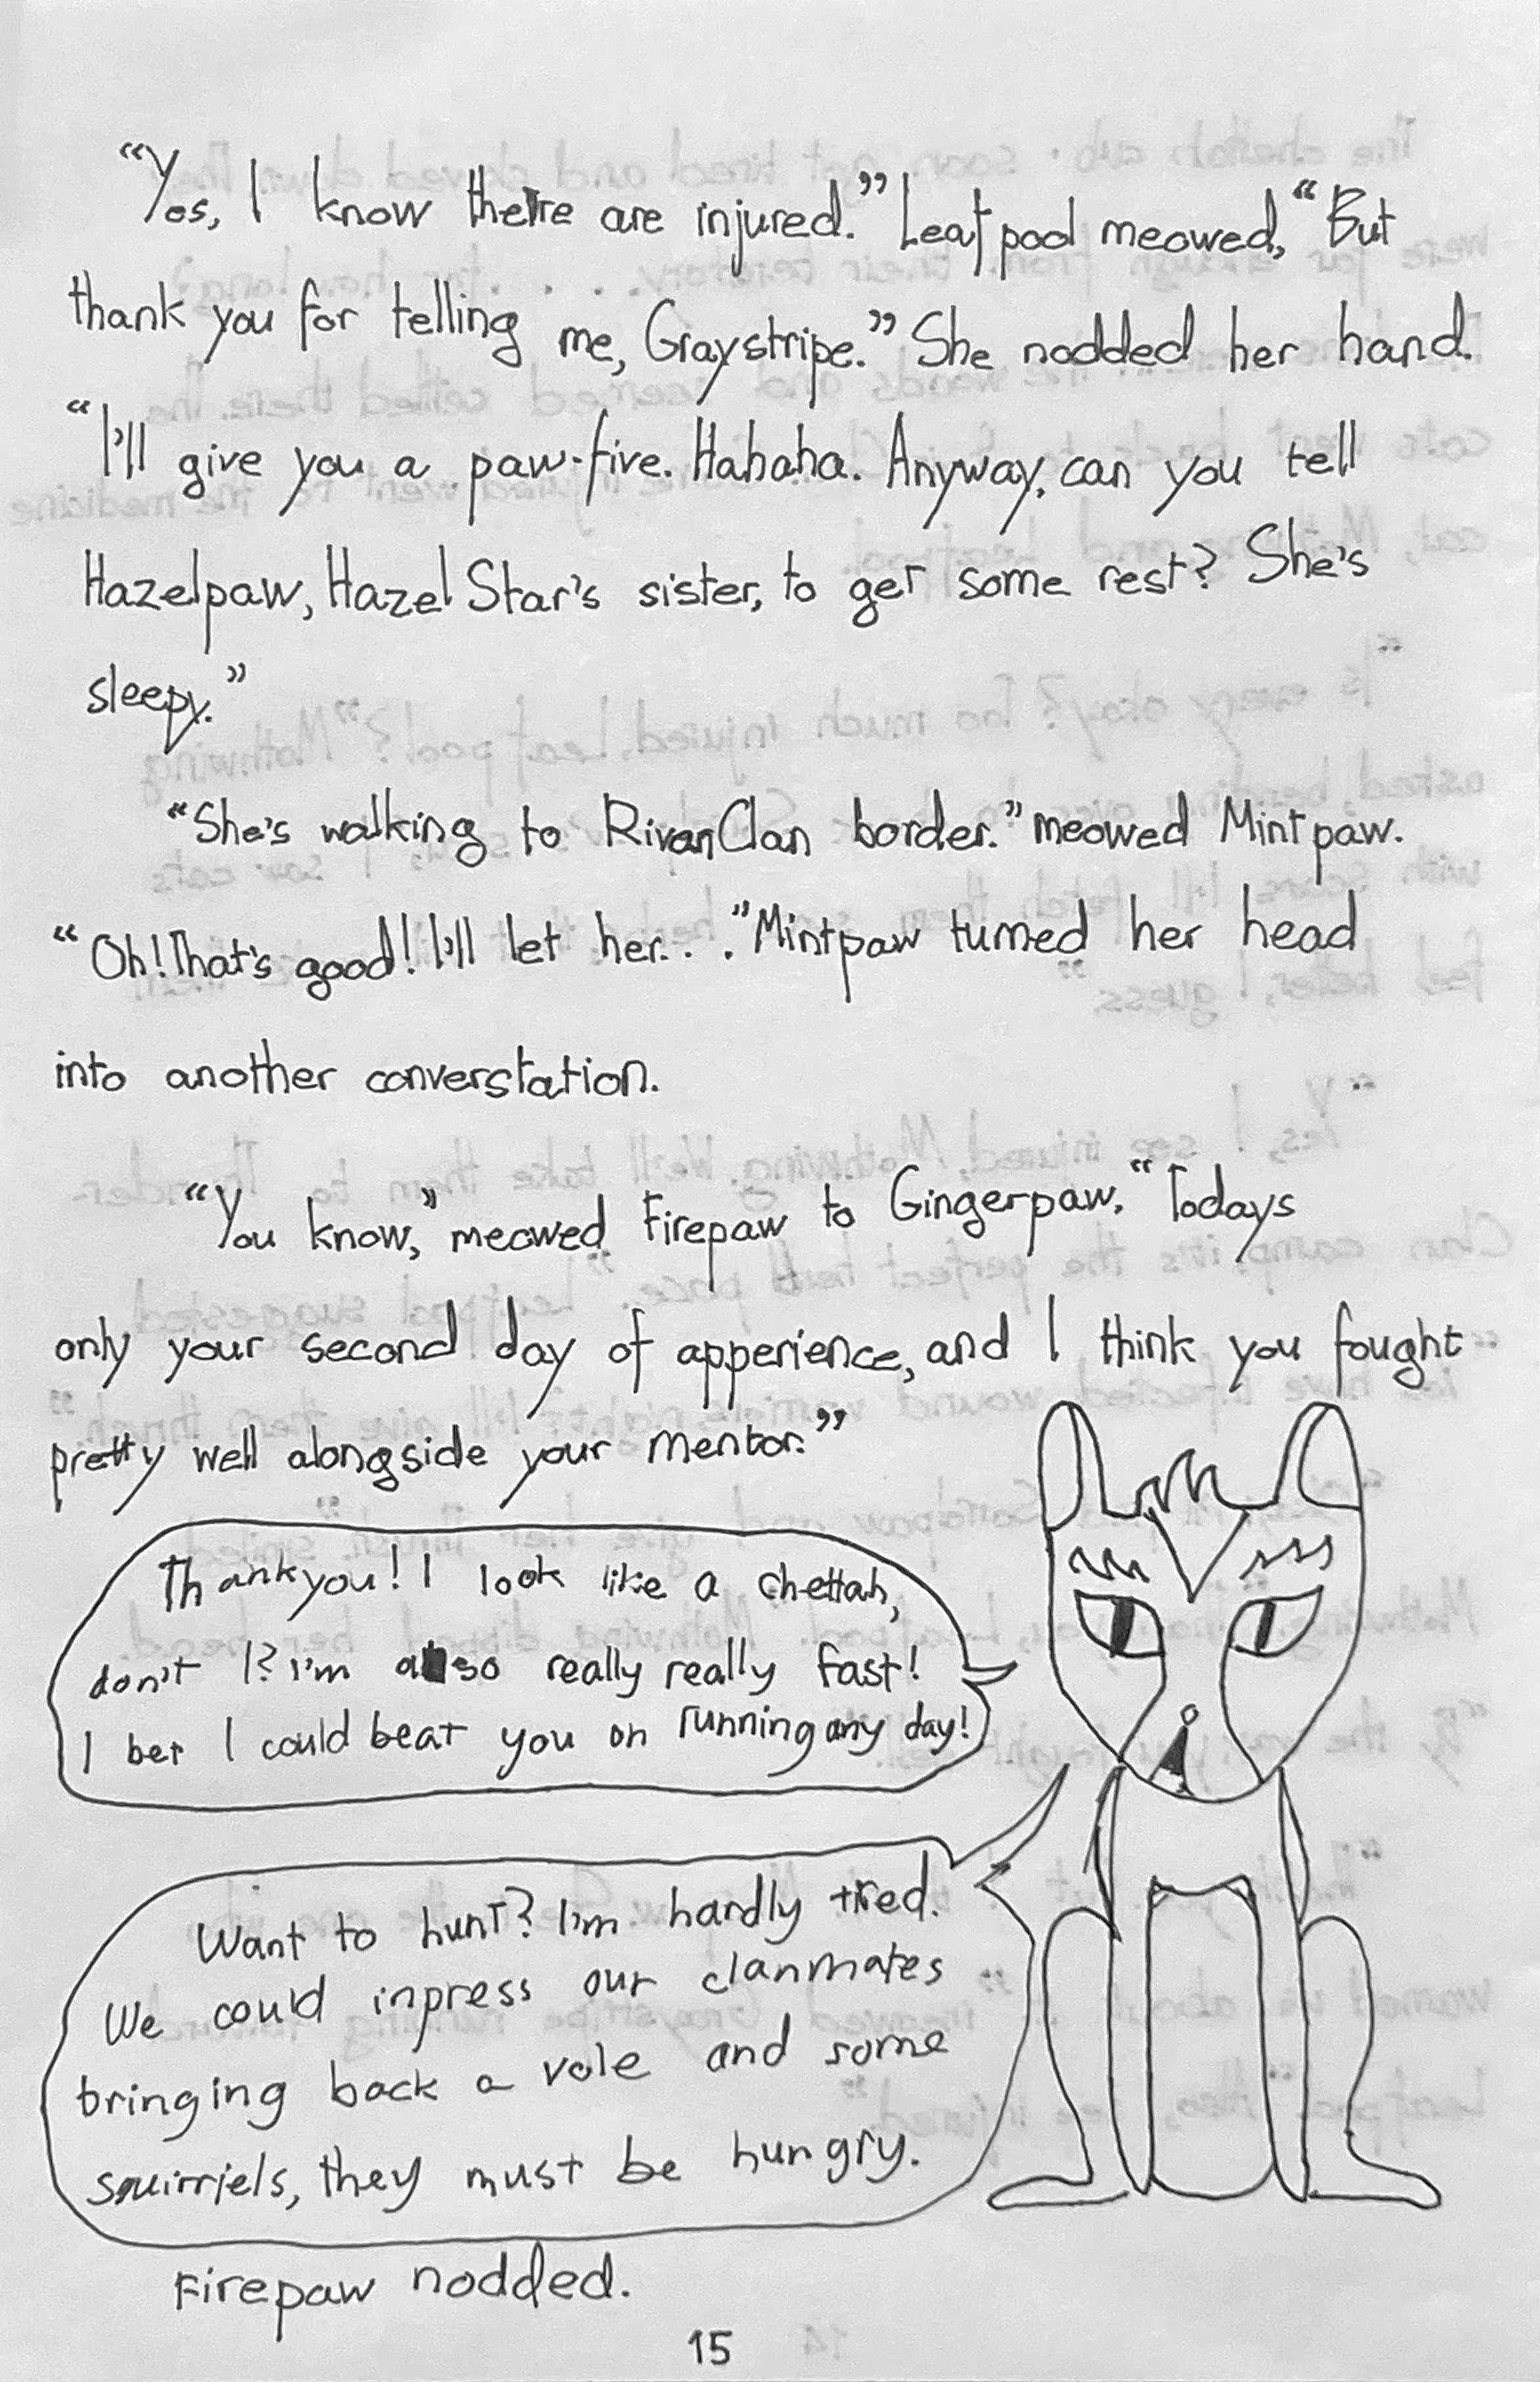 “Yes, I know there are injured.” Leafpool meowed, “But
thank you for telling me, Graystripe.” She nodded her hand.
“I'll give you a paw-five. Hahaha. Anyway, can you tell
Hazelpaw, Hazel Star's sister, to get some rest? She's
sleepy.”
“She's walking to RivanClan border.” meowed Mintpaw.
“Oh! That's good! I'll let her. . .” Mintpaw turned her head
into another converstation.
“You know,” meowed Firepaw to Gingerpaw. “Todays
only your second day of apperience, and I think you fought
pretty well alongside your mentor.”
Thankyou! I look like a chettah,
don't I? I'm also really really fast!
I bet I could beat you on running any day!
Want to hunt? I'm hardly tired.
We could inpress our clanmates
bringing back a vole and some
squirriels, they must be hungry.
Firepaw nodded.
15